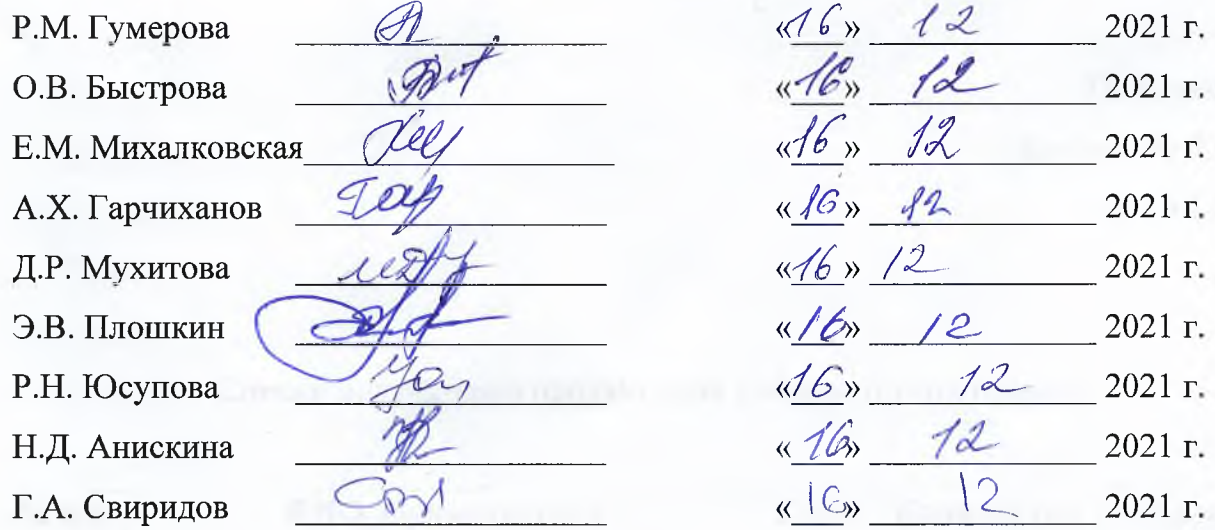 Р.М. Гумерова «16» 12 2021 г.
О.В. Быстрова «16» 12 2021 г.
Е.М. Михалковская «16» 12 2021 г.
А.Х. Гарчиханов «16» 12 2021 г.
Д.Р. Мухитова «16» 12 2021 г.
Э.В. Плошкин «16» 12 2021 г.
Р.Н. Юсупова «16» 12 2021 г.
Н.Д. Анискина «16» 12 2021 г.
Г.А. Свиридов «16» 12 2021 г.